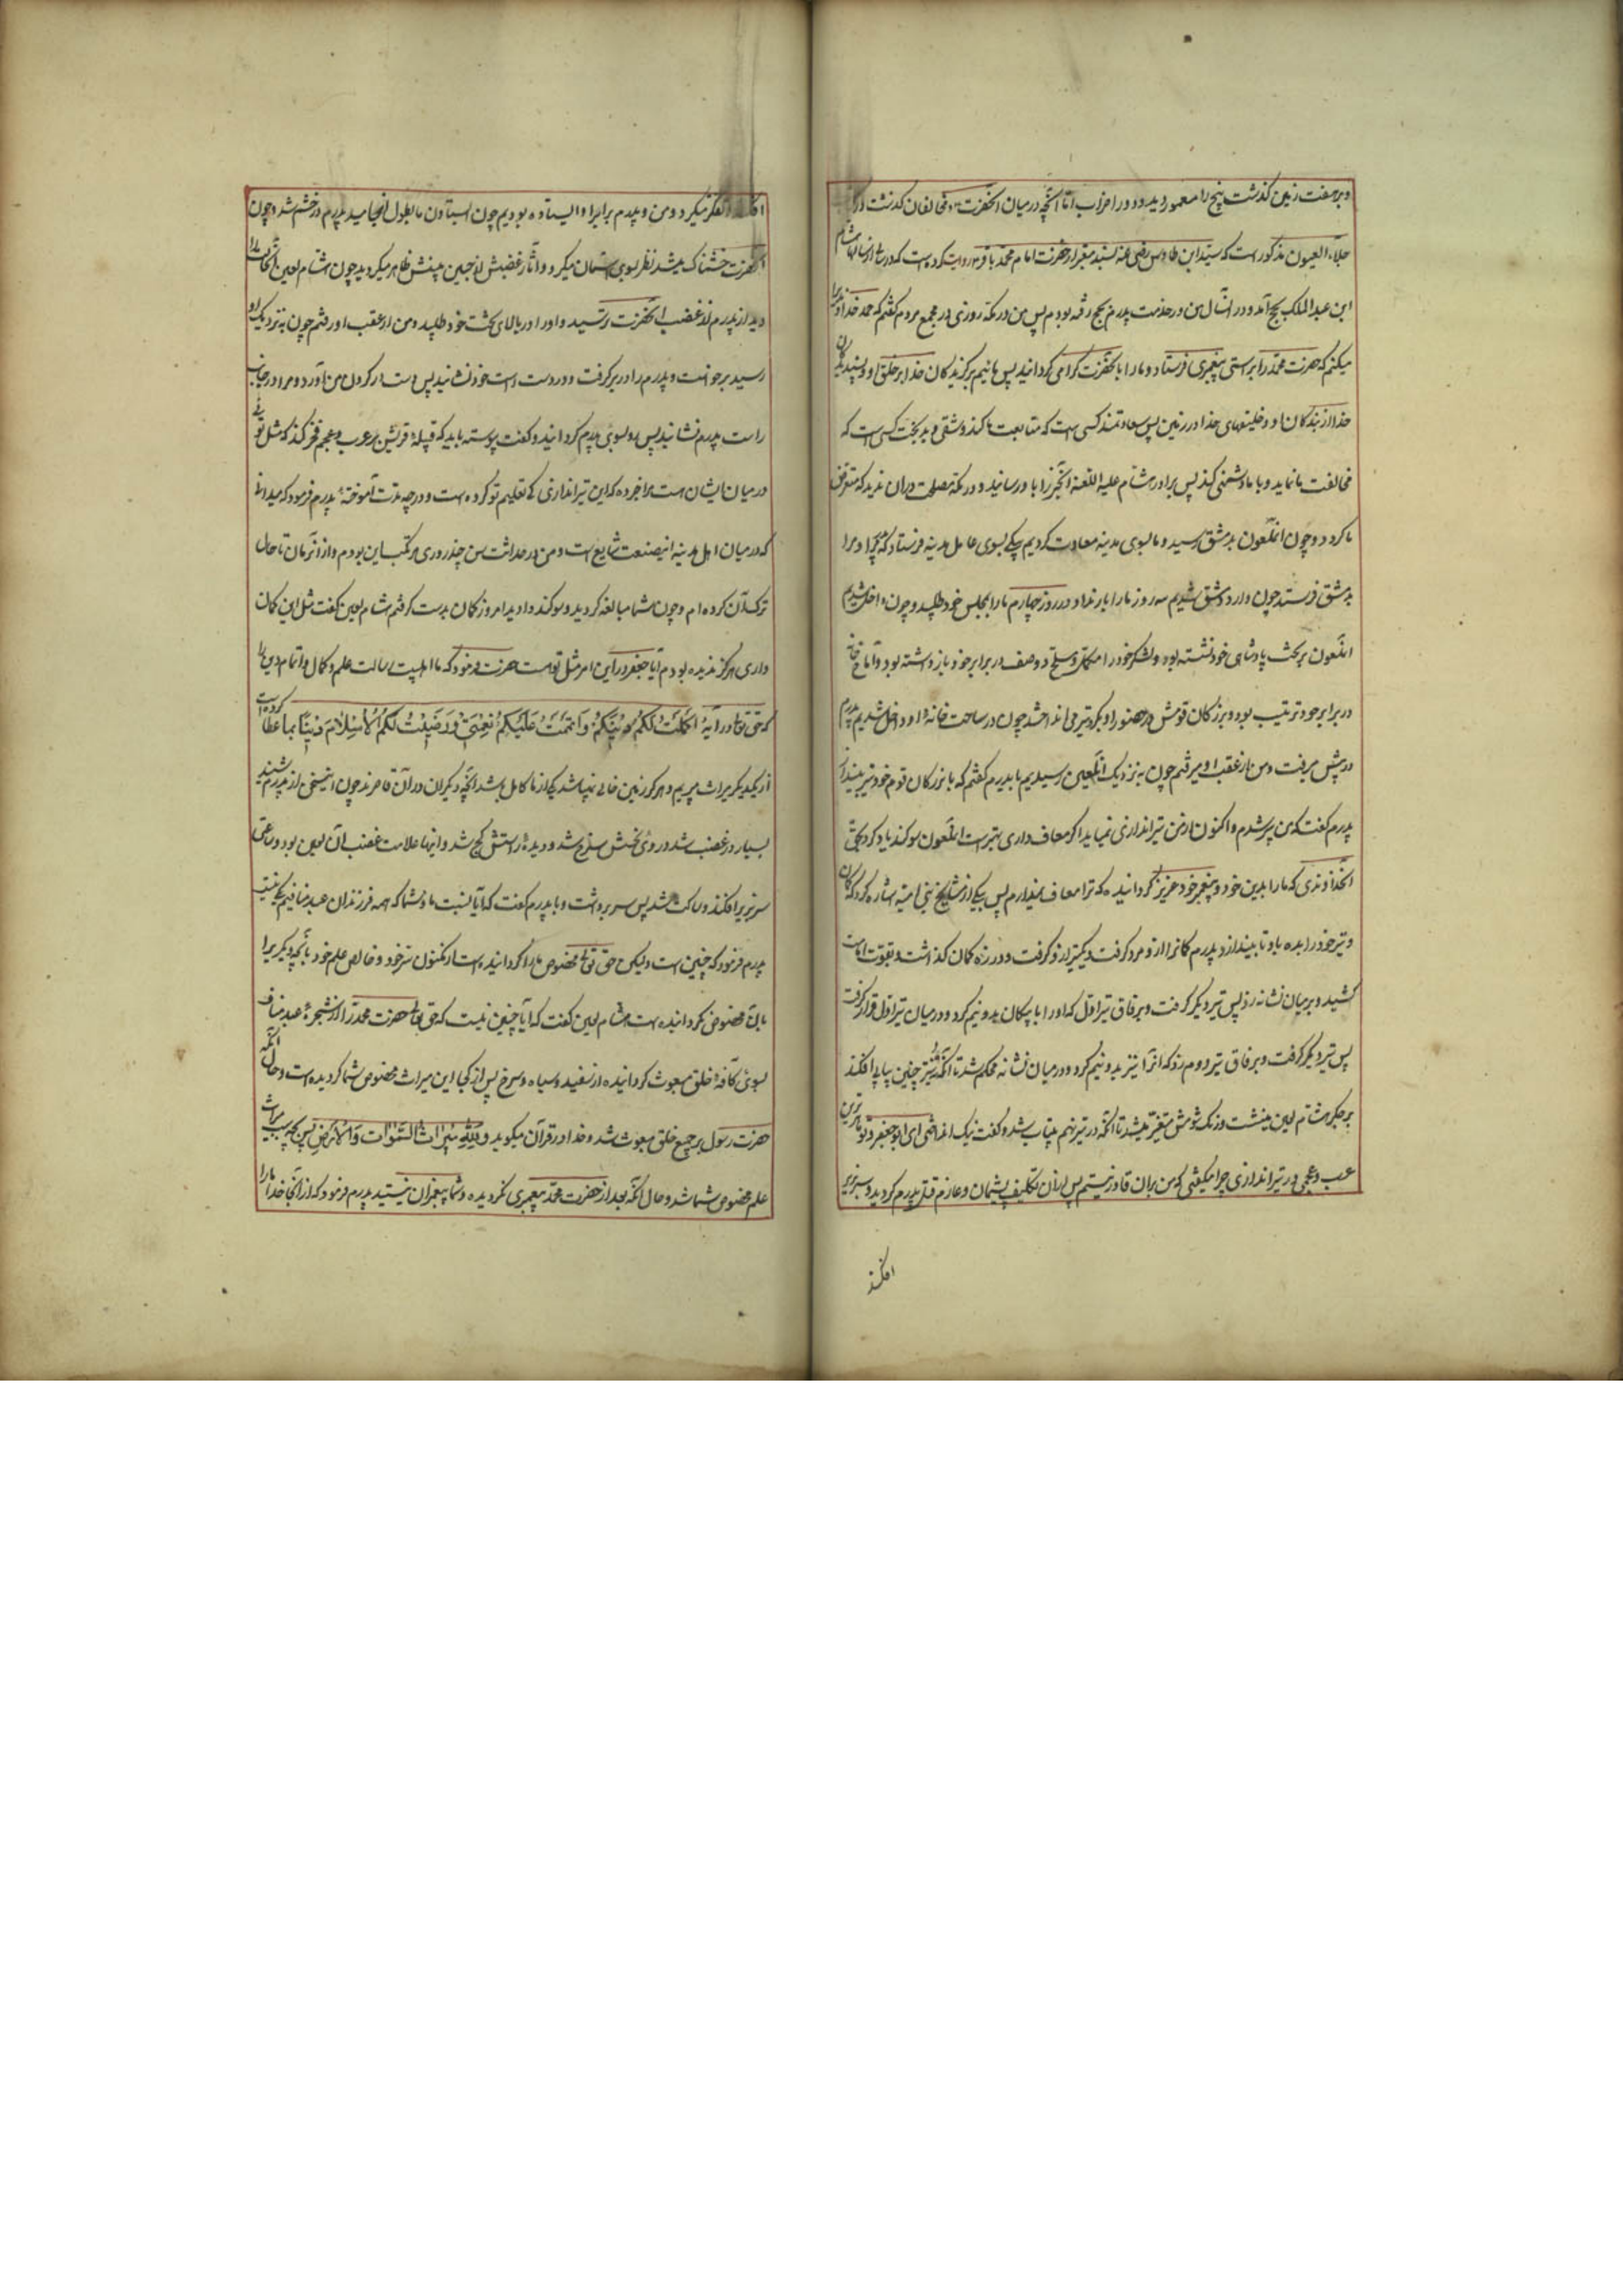 و بر هفت زمین گذشت پنج را معمور دید و دو را خراب اما آنچه در میان آنحضرت و مخالفان گذشت در
جلاء العیون مذکور است که سید ابن طاوس رضی عنه بسند معتبر از حضرت امام محمد باقر روایت کرده است که در سالی از سالها هشام
ابن عبد الملک بحج آمد و در آنسال من در خدمت پدرم بحج رفته بودم پس من در مکه روزی در مجمع مردم گفتم که حمد خداوندیرا
میکنم که حضرت محمد را براستی پیغمبری فرستاد و ما را بانحضرت گرامی گردانید پس مائیم برگزیدگان خدا بر خلق او و پسندیدگان
خدا از بندگان او و خلیفهای خدا در زمین پس سعادتمند کسی است که متابعت ما کند و شقی و بدبخت کسی است که
مخالفت ما نماید و با ما دشمنی کند پس برادر هشام علیه اللعنه این خبر را باو رسانید و در مکه مصلحت در آن ندید که متعرض
ما گردد و چون آنملعون بدمشق رسید و ما بسوی مدینه معاودت کردیم پیکی بسوی عامل مدینه فرستاد که پدرم را و مرا
بدمشق فرستد چون وارد دمشق شدیم سه روز ما را بار نداد و در روز چهارم ما را بمجلس خود طلبید و چون داخل شدیم
آنملعون بر تخت پادشاهی خود نشسته بود و لشکر خود را مکمل و مسلح دو صف در برابر خود باز داشته بود و آماج خانه
در برابر خود ترتیب بود و بزرگان قومش در حضور او بگرو تیر می انداختند چون در ساحت خانه او داخل شدیم پدرم
در پیش میرفت و من از عقب او میرفتم چون به نزدیک آنلعین رسیدیم با پدرم گفتم که با بزرگان قوم خود تیر بینداز
پدرم گفت که من پیر شدم و اکنون از من تیر اندازی نمیاید اگر معاف داری بهتر است آنملعون سوگند یاد کرد که بحق
آنخداوندی که ما را بدین خود و پیغمبر خود عزیز گردانیده که ترا معاف نمیدارم پس بیکی از مشایخ بنی امیه اشاره کرد که کمان
و تیر خود را بده باو تا بیندازد پدرم کمانرا از آنمرد گرفت و یکتیر ازو گرفت و در زه کمان گذاشت و بقوت امامت
کشید و بر میان نشانه زد پس تیر دیگر گرفت و بر فاق تیر اول که او را با پیکان بدو نیم کرد و در میان تیر اول قرار گرفت
پس تیر دیگر گرفت و بر فاق تیر دوم زد که آنرا نیز بدو نیم کرد و در میان نشانه محکم شد تا آنکه نه تیر چنین پیاپی افکند
بر جگر هشام لعین مینشست و رنگ شومش متغیر میشد تا آنکه در تیر نهم بیتاب شد و گفت نیک انداختی ای ابو جعفر و تو ماهرترین
عرب و عجمی در تیر اندازی چرا میگفتی که من بران قادر نیستم پس از آن تکلیف پشیمان و عازم قتل پدرم گردید و سر بزیر
افکند
تفکر میکرد و من و پدرم در برابر او ایستاده بودیم چون ایستادن ما بطول انجامید پدرم در خشم شد و چون
آنحضرت خشمناک میشد نظر بسوی آسمان میکرد و آثار غضبش از جبین مبینش ظاهر میگردید چون هشام لعین آنحالت را
دید از پدرم از غضب آنحضرت ترسید و او را بر بالای تخت خود طلبید و من از عقب او رفتم چون به نزدیک او
رسید برخواست و پدرم را در بر گرفت و در دست راست خود نشانید پس دست در گردن من آورد و مرا در جانب
راست پدرم نشانید پس رو بسوی پدرم گردانید و گفت پیوسته باید که قبیلهٔ قریش بر عرب و عجم فخر کند که مثل توئی
در میان ایشان هست مرا خبر ده که این تیر اندازی که تعلیم تو کرده است و در چه مدت آموختهٔ پدرم فرمود که میدانی
که در میان اهل مدینه این صنعت شایع است و من در حداثت سن چند روزی مرتکب این بودم و از آنزمان تا حال
ترک آن کرده ام و چون شما مبالغه کردید و سوگند دادید امروز کمان بدست گرفتم هشام لعین گفت مثل این کمان
داری هرگز ندیده بودم آیا جعفر در این امر مثل تو هست حضرت فرمود که ما اهلبیت رسالت علم و کمال و اتمام دین را
که حق تعالی در آیهٔ اکملت لکم دینکم و اتممت علیکم نعمتی و رضیت لکم الاسلام دینا بما عطا کرده است
از یکدیگر میراث میبریم و هرگز زمین خالی نمیباشد یکی از ما کامل باشد آنچه دیگران در آن قاصرند چون این سخن از پدرم شنید
بسیار در غضب شد و روی نحسش سرخ شد و دیدهٔ راستش کج شد و اینها علامت غضب آن لعین بود و ساعتی
سر بزیر افکند و ساکت شد پس سر برداشت و با پدرم گفت که آیا نسبت ما و شما که همه فرزندان عبد منافیم یکی نیست
پدرم فرمود که چنین است و لیکن حق تعالی مخصوص ما را گردانیده است از مکنون سر خود و خالص علم خود بآنچه دیگریرا
بان مخصوص نگردانیده است هشام لعین گفت که آیا چنین نیست که حق تعالی حضرت محمد را از شجرهٔ عبد مناف
بسوی کافهٔ خلق مبعوث گردانیده از سفید و سیاه و سرخ پس از کجا این میراث مخصوص شما گردیده است و حال آنکه
حضرت رسول بر جمیع خلق مبعوث شد و خدا در قرآن میگوید و لله میراث السموات و الارض پس بچه سبب میراث
علم مخصوص شما شد و حال آنکه بعد از حضرت محمد پیغمبری نگردیده و شما پیغمبران نیستید پدرم فرمود که از آنجا خدا ما را